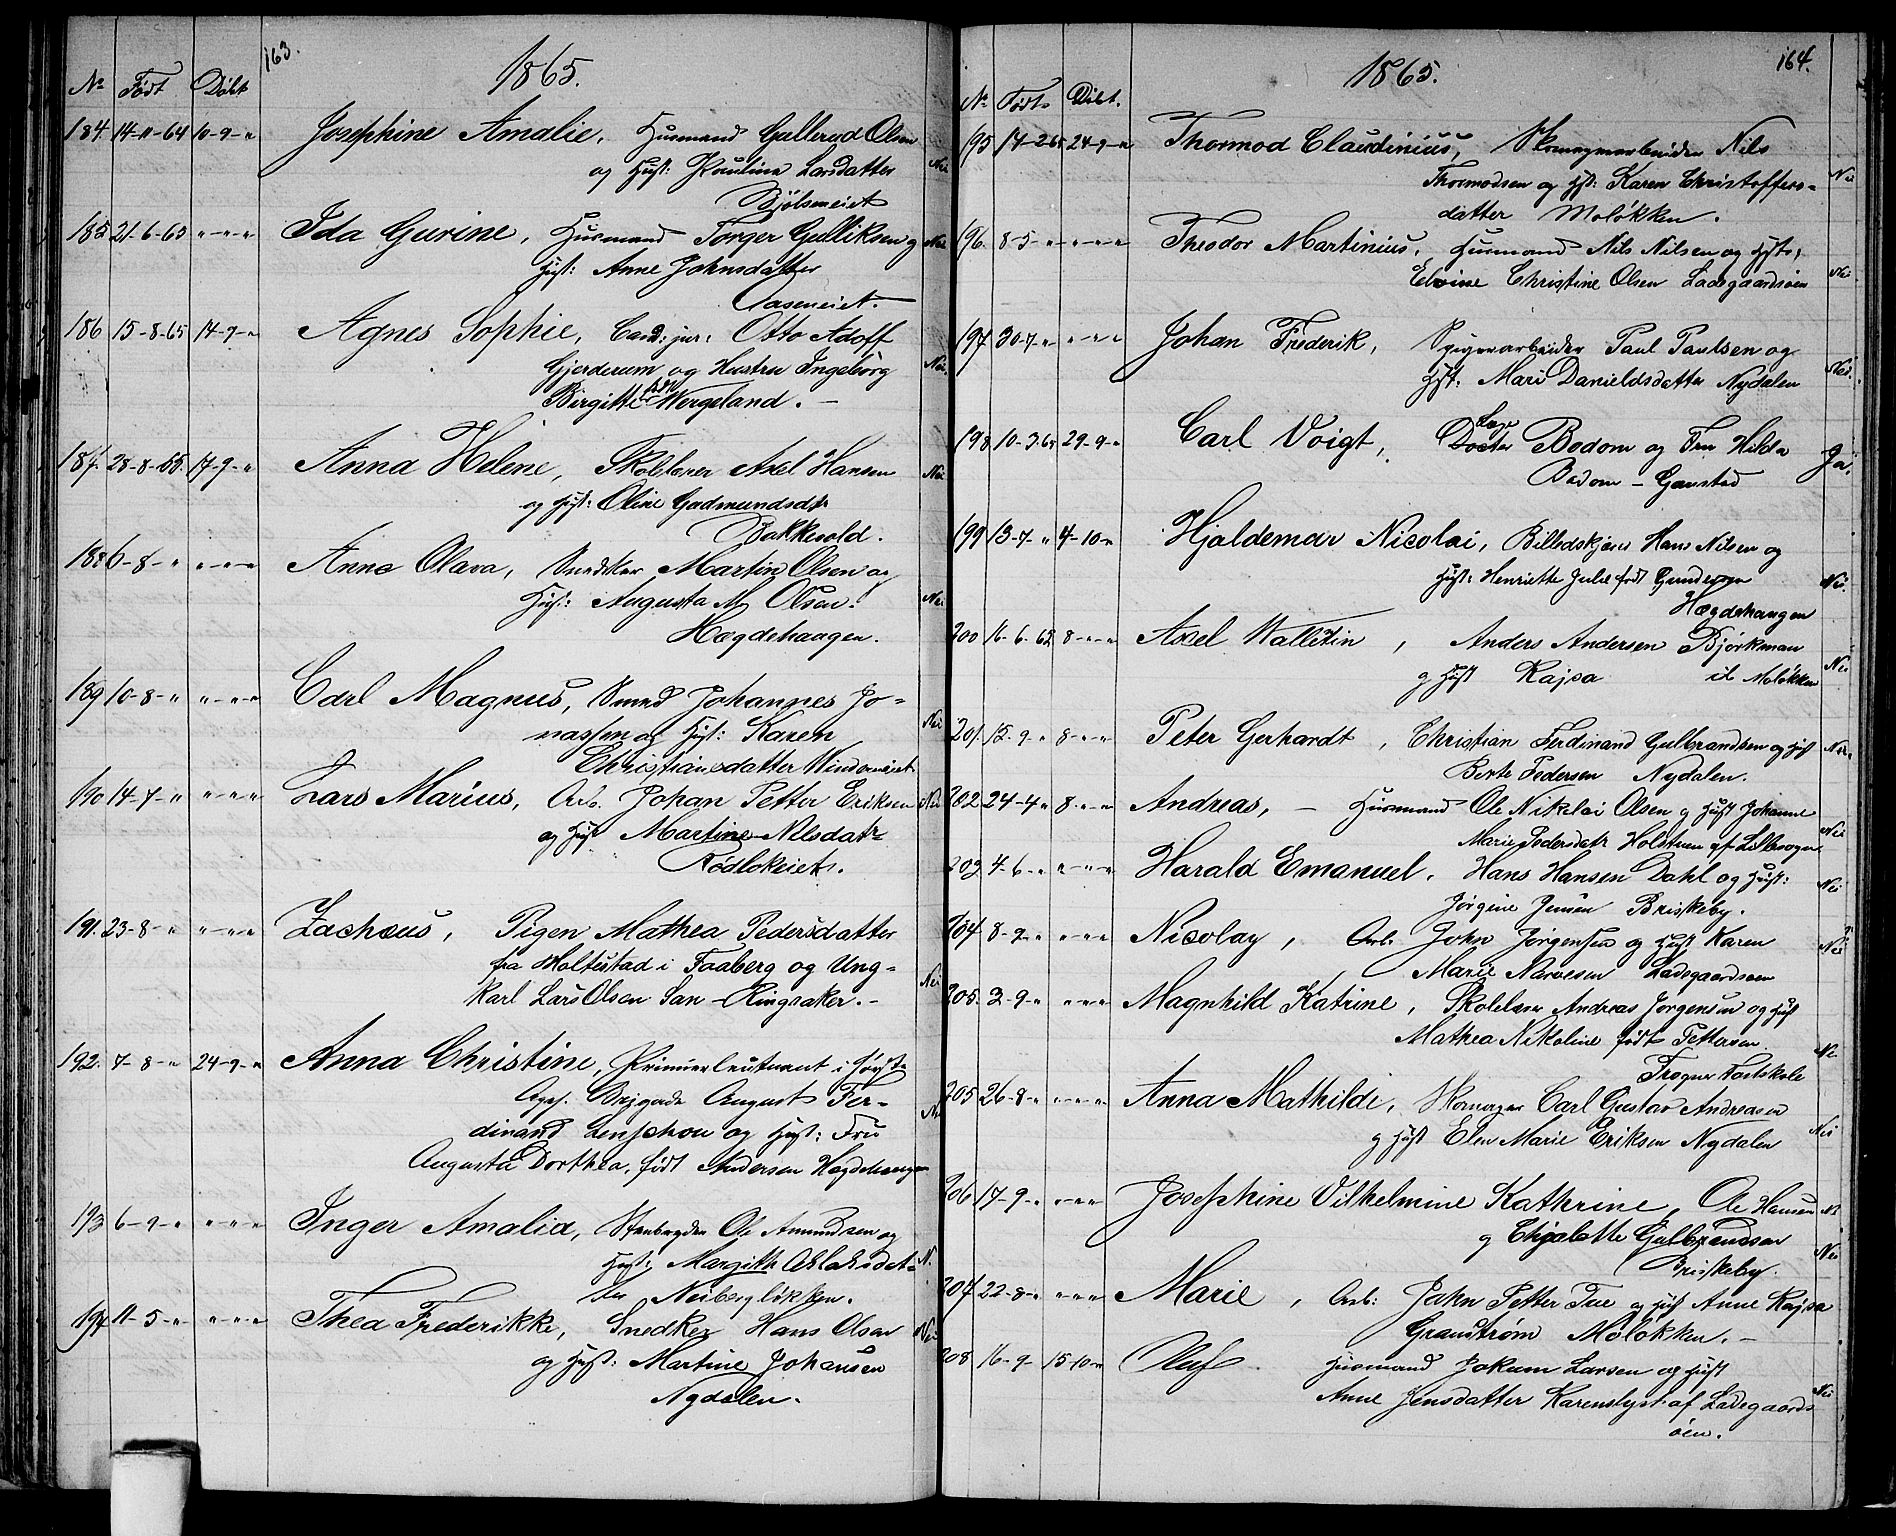 163.
1865.
No Født Døbt
184. 14-11-64 10-9-" Josephine Amalie. Husmand Gullerud Olsen
og Hust: Paulina Larsdatter Nei
Bjølseneiet
185 21-6-65 "-"-" Ida Gurine, Husmand Torger Gulliksen og Nei
Hust: Anne Johnsdatter
Aaseneiet.
186 15-8-65 14-9-" Agnes Sophie, Cand: jur: Otto Adolf
Gjerdrum og Hustru Ingeborg Nei.
Birgitte født Wergeland. -
187. 28-8-65. 17-9-" Anna Helene, Skolelærer Axel Hansen Nei
og Hust: Oline Gudmundsdtr
Bakkevold.
188 6-8-" "-"-" Anne Olava, Snedker Martin Olsen og
Hust: Augusta M. Olsen. Nei
Hægdehaugen.
189 10-8-" "-"-" Carl Magnus, Smed Johannes Jo-
nassen og Hust: Karen Nei
Christiansdatter Winderneiet
190 14-7-" "-"-" Lars Marius, Arb. Johan Petter Eriksen Nei
og Hust Martine Nilsdatr
Rødløkeiet.
191. 23-8-" "-"-" Zachæus, Pigen Mathea Pedersdatter
fra Holtestad i Faaberg og Ung- Nei
karl Lars Olsen San - Ringsaker. -
192. 7-8-" 24-9-" Anna Christine, Primierleutenant i
Brigade August Fer-
dinand og Hust: Fru
Augusta Dorthea, født Andersen Hægdehaugen
193 6-9-" "-"-" Inger Amalia, Ole Amundsen og
Hust: Margith Aslaksdat- N.
ter Neuberg løkken.
194 11-5-" "-"-" Thea Frederikke, Snedker Hans Olsen Nei
og Hust: Martine Johansen
Nydalen.
164.
1865.
No Født Døbt.
195 14-2-65 24-9-" Thormod Claudinius, Skomagerarbeider Nils
Thormodsen og Hst: Karen Christoffers- Nei
datter Moløkken.
196. 8-5-" "-"-" Theodor Martinius, Husmand Nils Nilsen og Hst:
Elvine Christine Olsen Ladegaardsøen Nei
197 30-7-" "-"-" Johan Frederik, Spigerarbeider Paul Paulsen og
Hst: Mari Danieldsdatter Nydalen Nei.
198 10-3-65 29-9-" Carl Voigt, Docter Læge Bodom og Fru Hilda Ja.
Bodom - Gaustad
199 13-7-" 4-10-" Hjaldemar Nicolai, Billedskjærer Hans Nilsen og
Hust: Henriette Julie født Gundersen Nei.
Hægdehaugen
200 16-6-65 8-"-" Axel Walletin, Anders Andersen Bjørkman
og Hust Kajsa Moløkken Nei
201. 15-9-" 8-"-" Peter Gerhardt, Christian Ferdinand Gulbrandsen og Hust Nei.
Berte Pedersen Nydalen.
202 24-4-" 8-"-" Andreas, - Husmand Ole Nikolai Olsen og Hust Johanne
Marie Pedersdatr Holstuen af Nei
203 4-6-" "-"-" Harald Emanuel. Hans Hansen Dahl og Hust: Nei
Jørgine Jensen Briskeby.
204 8-9-" "-"-" Nicolay, Arb. John Jørgensen og Hust Karen Nei
Marie Narvesen Ladegaardsøen
205. 3-9-" "-"-" Magnhild Katrine, Skolelærer Andreas Jørgensen og Hust
Mathea Nikoline født Pettersen. Nei
Frogner
205 26-8-" "-"-" Anna Mathilde, Skomager Carl Gustav Andreasen
og Hust Elen Marie Eriksen Nydalen Nei
206 17-9-" "-"-" Josephine Vilhelmine Kathrine, Ole Hansen Nei
og Gulbrandsen
Briskeby. Nei
207 22-8-" "-"-" Marie, Arb: John Petter Tue og Hust Anne Kajsa
Granstrøm Moløkken. -
208 16-9- 15-10-" Oluf. Husmand Jokum Larsen og Hust
Anne Jensdatter Karenslyst af Ladegaards- Nei
øen.